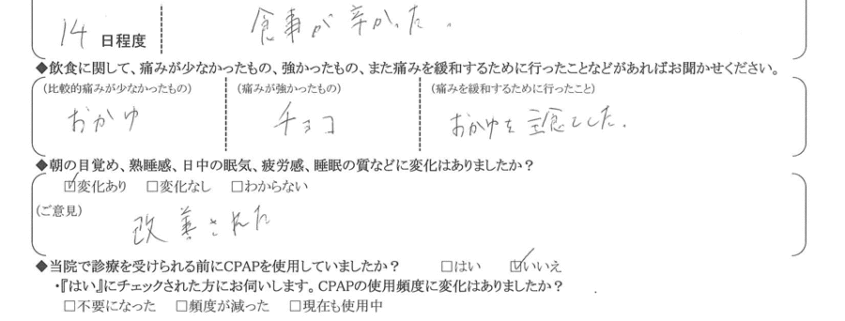 14 日程度 食事が辛かった.
◆飲食に関して、痛みが少なかったもの、強かったもの、また痛みを緩和するために行ったことなどがあればお聞かせください。
(比較的痛みが少なかったもの) (痛みが強かったもの) (痛みを緩和するために行ったこと)
おかゆ チョコ おかゆを主食とした.
◆朝の目覚め、熟睡感、日中の眠気、疲労感、睡眠の質などに変化はありましたか?
☑変化あり □変化なし □わからない
(ご意見)
改善された
◆当院で診療を受けられる前にCPAPを使用していましたか? □はい ☑いいえ
・『はい』にチェックされた方にお伺いします。CPAPの使用頻度に変化はありましたか?
□不要になった □頻度が減った □現在も使用中